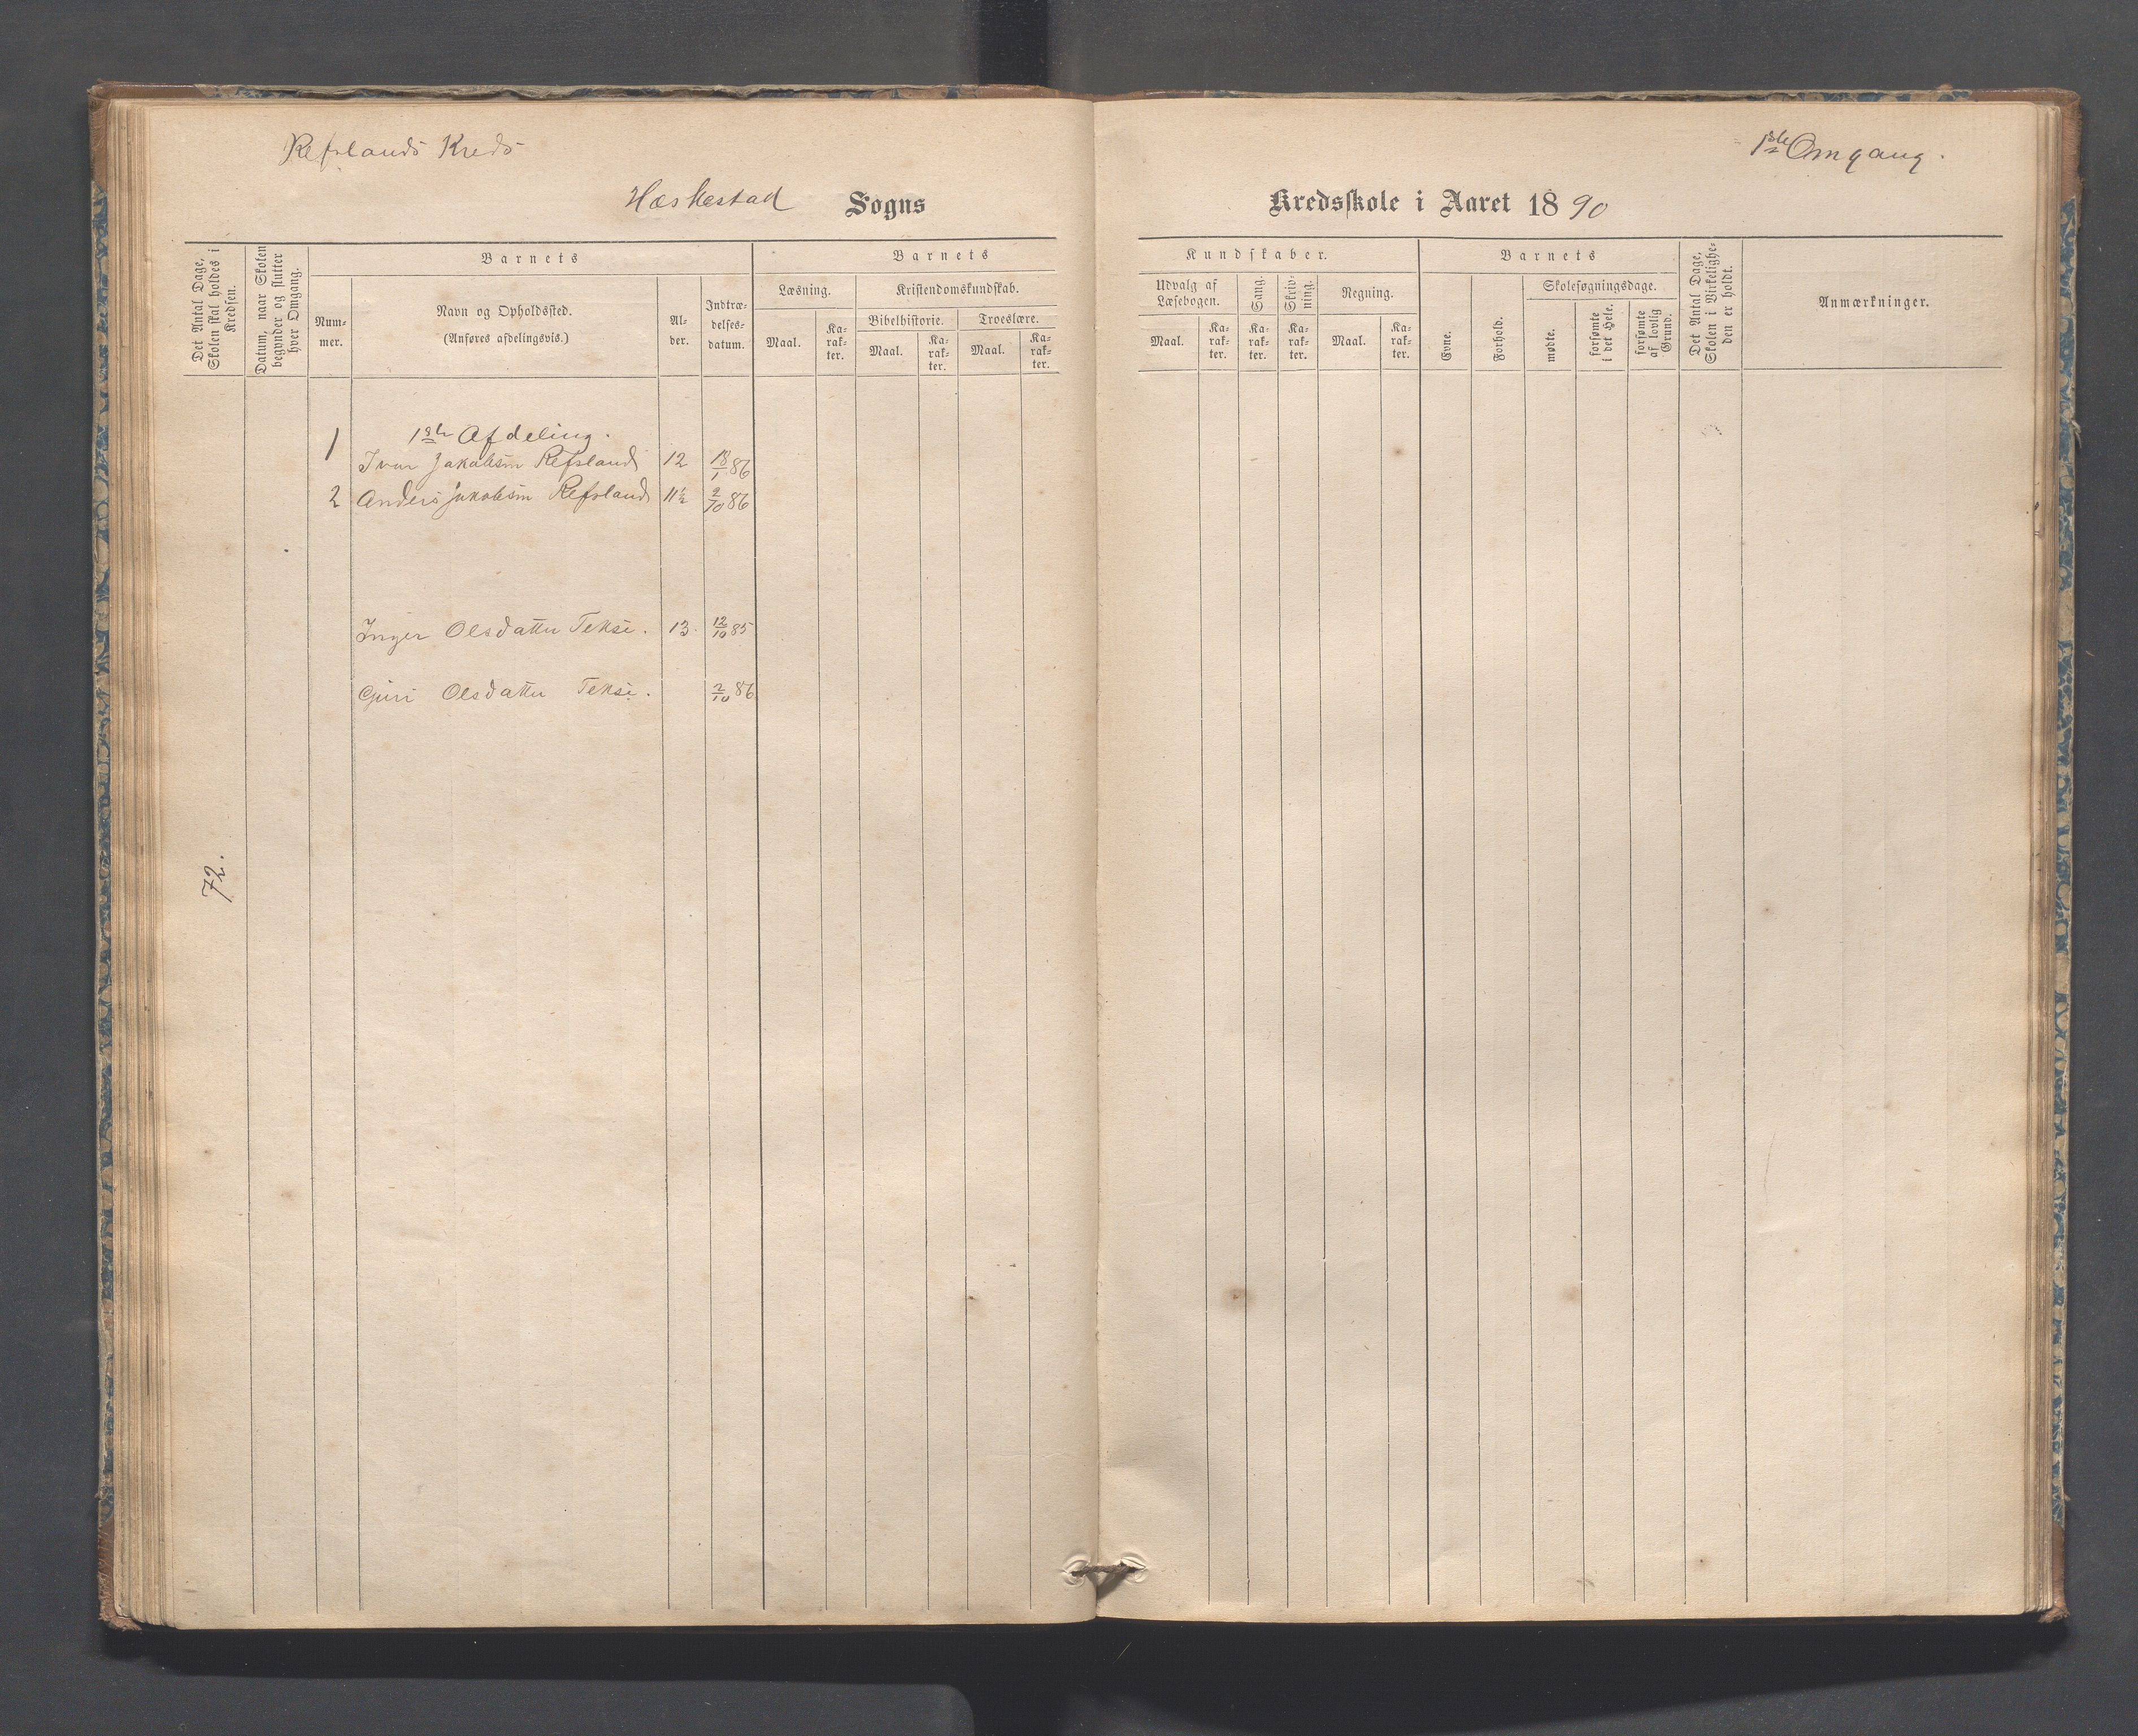 Refslands Kreds
1ste Omgang.
Hæskestad Sogns
Kredsskole i Aaret 1890
Det Antal Dage, Skolen skal holdes i Kredsen.
Datum, naar Skolen begynder og slutter hver Omgang.
Barnets
Num-
mer.
Navn og Opholdssted.
(Anføres afdelingsvis.)
Al-
der.
Indtræ-
delses-
datum.
Barnets
Læsning.
Maal.
Ka-
rak-
ter.
Kristendomskundskab.
Bibelhistorie.
Maal.
Ka-
rak-
ter.
Troeslære.
Maal.
Ka-
rak-
ter.
Kundskaber.
Udvalg af
Læsebogen.
Maal.
Ka-
rak-
ter.
Sang.
Ka-
rak-
ter.
Skriv-
ning.
Ka-
rak-
ter.
Regning.
Maal.
Ka-
rak-
ter.
Barnets
Evne.
Forhold.
Skolesøgningsdage.
mødte.
forsømte
i det Hele.
forsømte
af lovlig
Grund.
Det Antal Dage,
Skolen i Virkelighe-
den er holdt.
Anmærkninger.
1ste Afdeling.
1 Ivar Jakobsen Refsland 12 18/1 86
2 Anders Jakobsen Refsland 11½ 2/10 86
Inger Olsdatter Teksе. 13 12/10 85
Guri Olsdatter Tekse. 2/10 86
72.